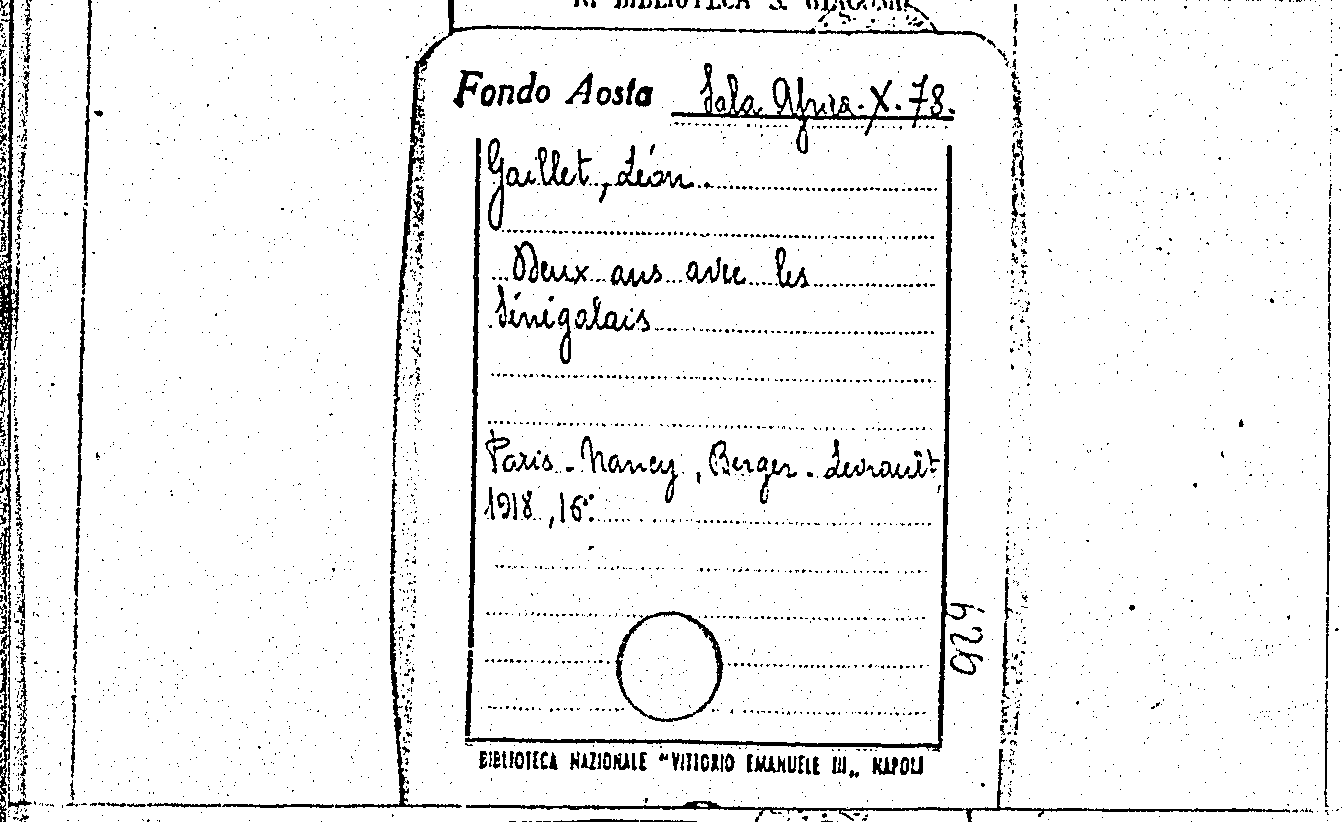 R. BIBLIOTECA
Fondo Aosta Sala Africa. X. 78.
Gaillet, Léon.
Deux ans avec les
Sénégalais
Paris - Nancy, Berger - Levrault,
1918, 16°.
924
BIBLIOTECA NAZIONALE "VITTORIO EMANUELE III„ NAPOLI